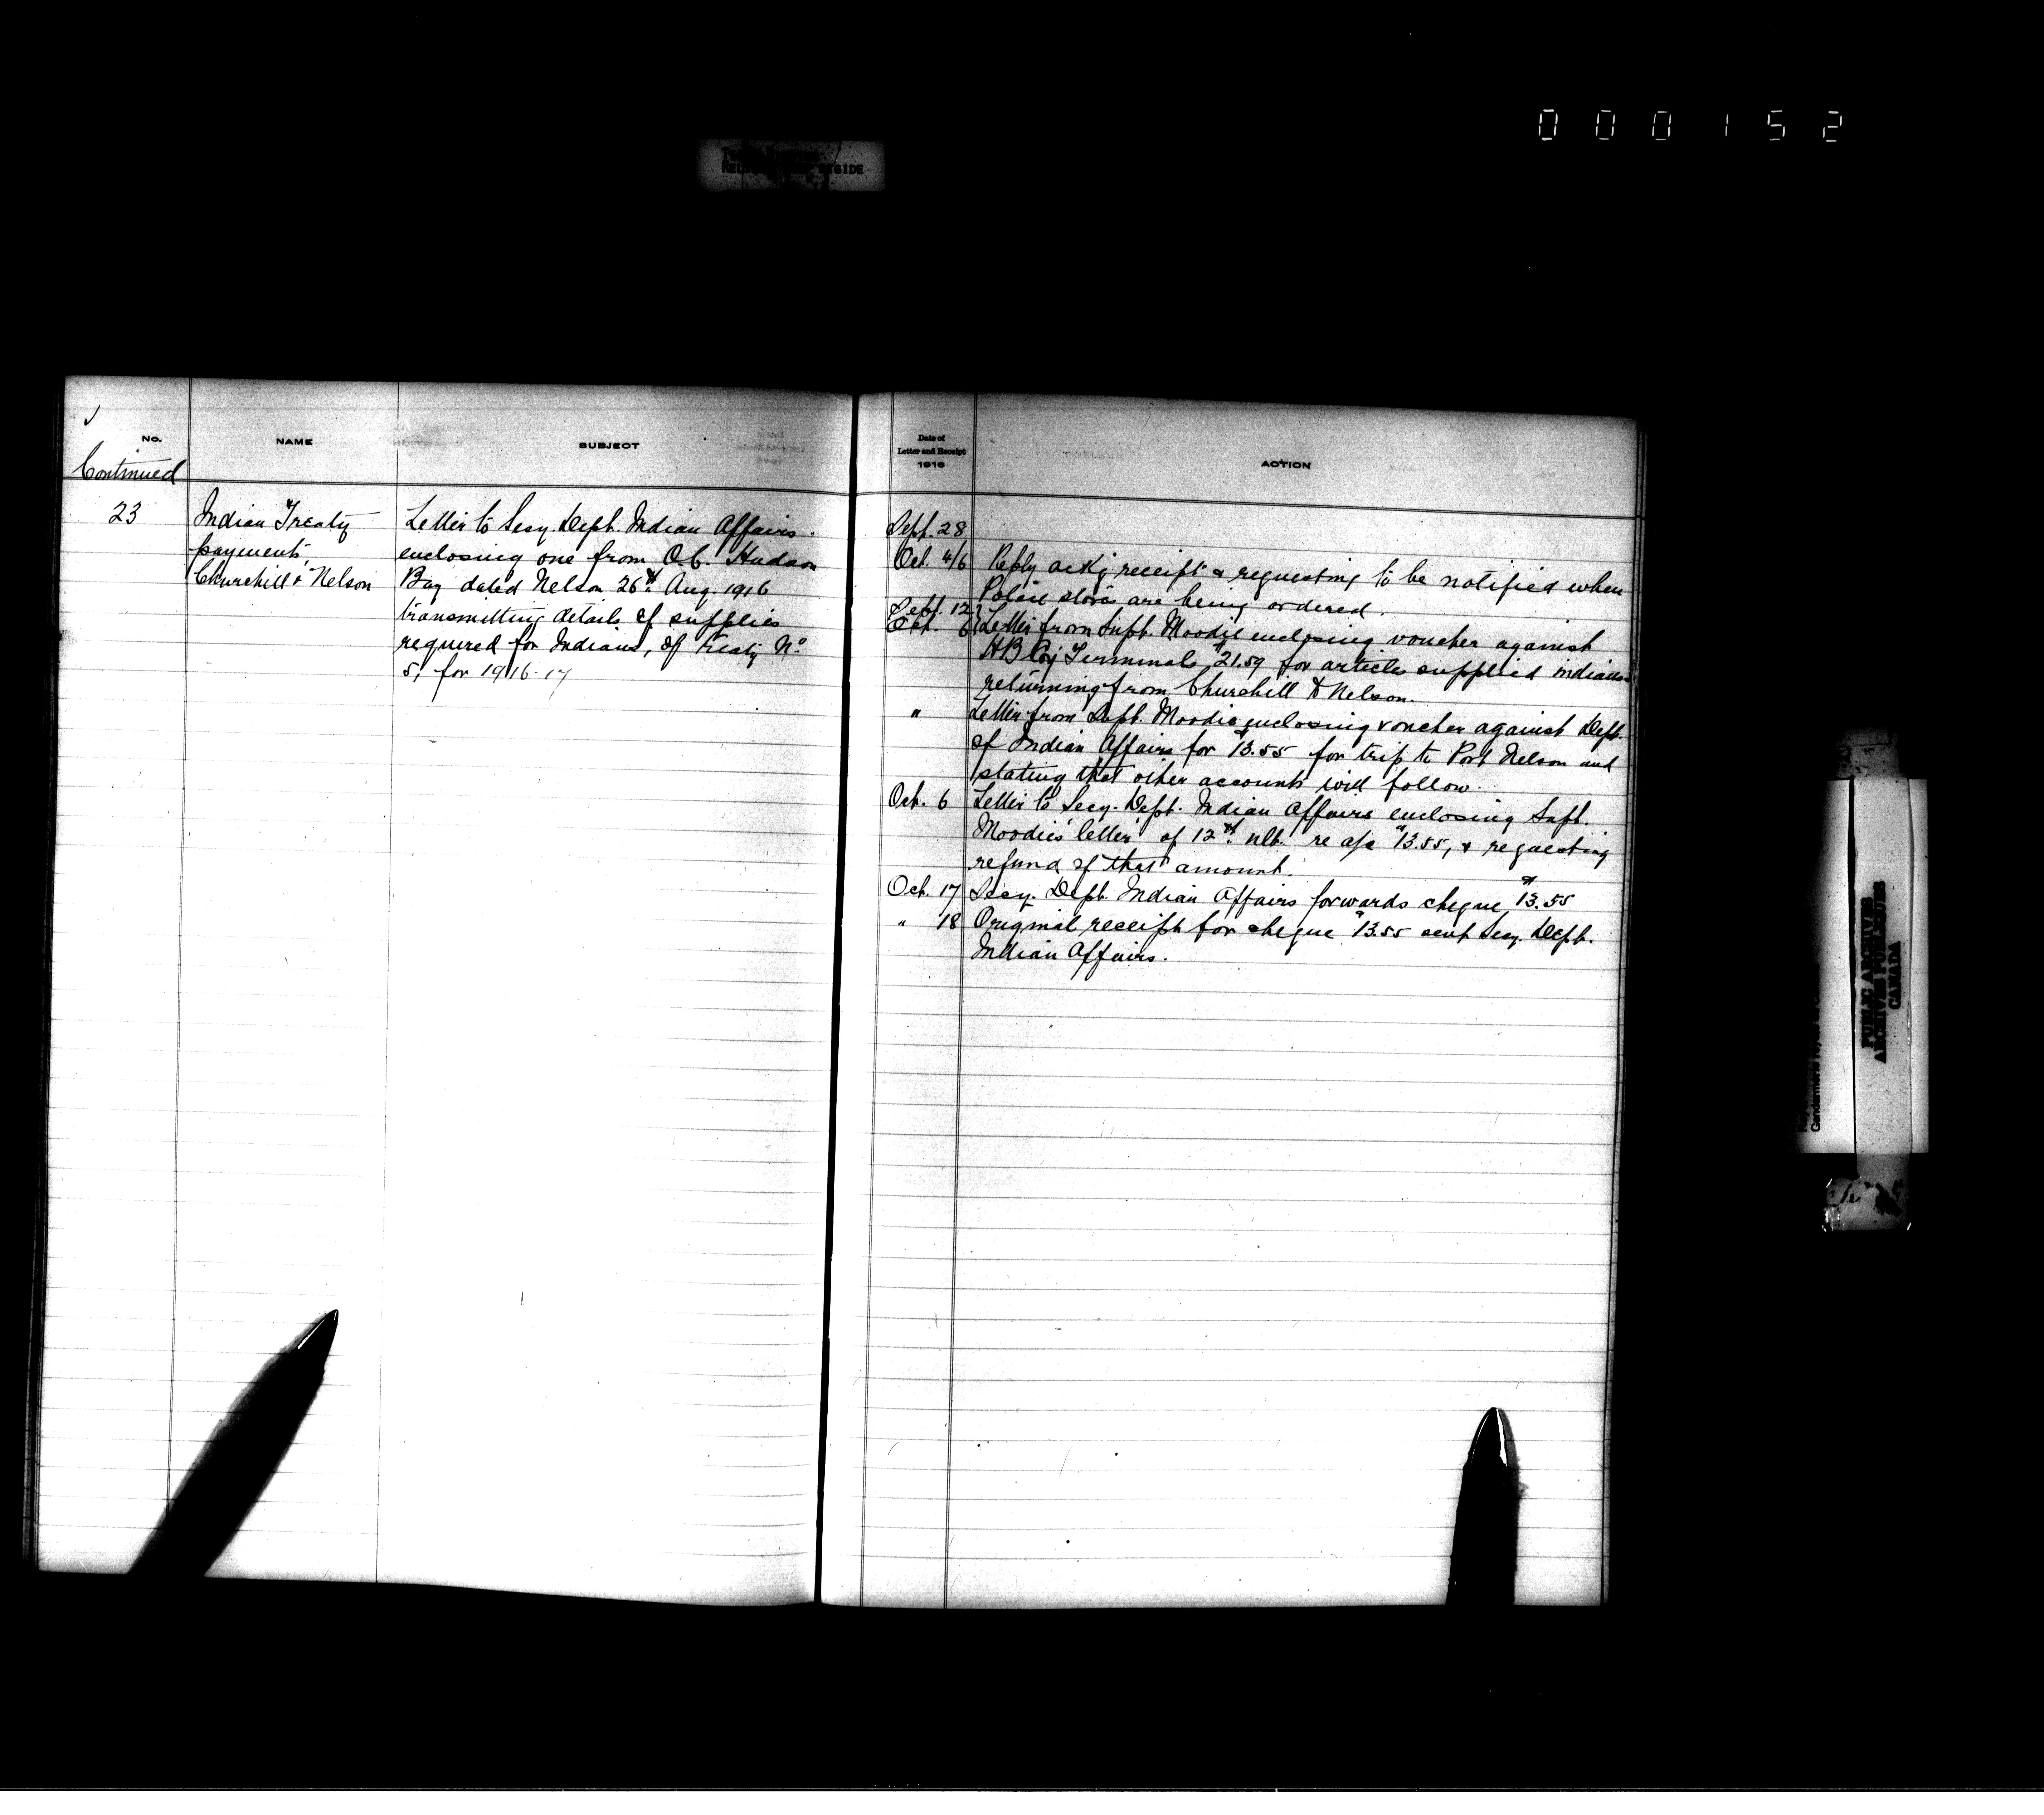 000152
No.
NAME
SUBJECT
Continued
23
Indian Treaty
payments,
Churchill & Nelson
Letter to Secy. Dept. Indian Affairs.
enclosing one from O.C. Hudson
Bay dated Nelson 26th Aug. 1916
transmitting details of supplies
required for Indians, of Treaty No
5, for 1916-17
Date of
Letter and Receipt
1916
ACTION
Sept. 28
Oct. 4/6 Reply ack'g receipt & requesting to be notified when
Police stores are being ordered.
Sept. 12
Oct. 6 Letter from Supt. Moodie enclosing voucher against
HB Ry Terminals $21.59 for articles supplied indians
returning from Churchill to Nelson.
" Letter from Supt. Moodie enclosing voucher against Dept.
of Indian Affairs for $13.55 for trip to Port Nelson and
stating that other accounts will follow.
Oct. 6 Letter to Secy. Dept. Indian Affairs enclosing Supt.
Moodie's letter of 12th ult. re a/c $13.55, & requesting
refund of that amount.
Oct. 17 Secy. Dept. Indian Affairs forwards cheque $13.55
" 18 Original receipt for cheque $13.55 sent Secy. Dept.
Indian Affairs.
PUBLIC ARCHIVES
ARCHIVES PUBLIQUES
CANADA